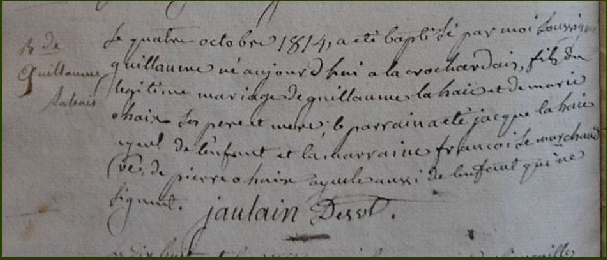 B de
Guillaume
Lahaie
Le quatre octobre 1814, a été baptisé par moi soussigné
guillaume né aujourd'hui a la crochardais, fils du
legitime mariage de guillaume la haie et de marie
ohaix ses pere et mere; le parrain a été jacque la haie
ayeul de l'enfant et la marraine francoise marchand
(ve. de pierre ohaix ayeule aussi de l'enfant qui ne
signent. jaulain Dess